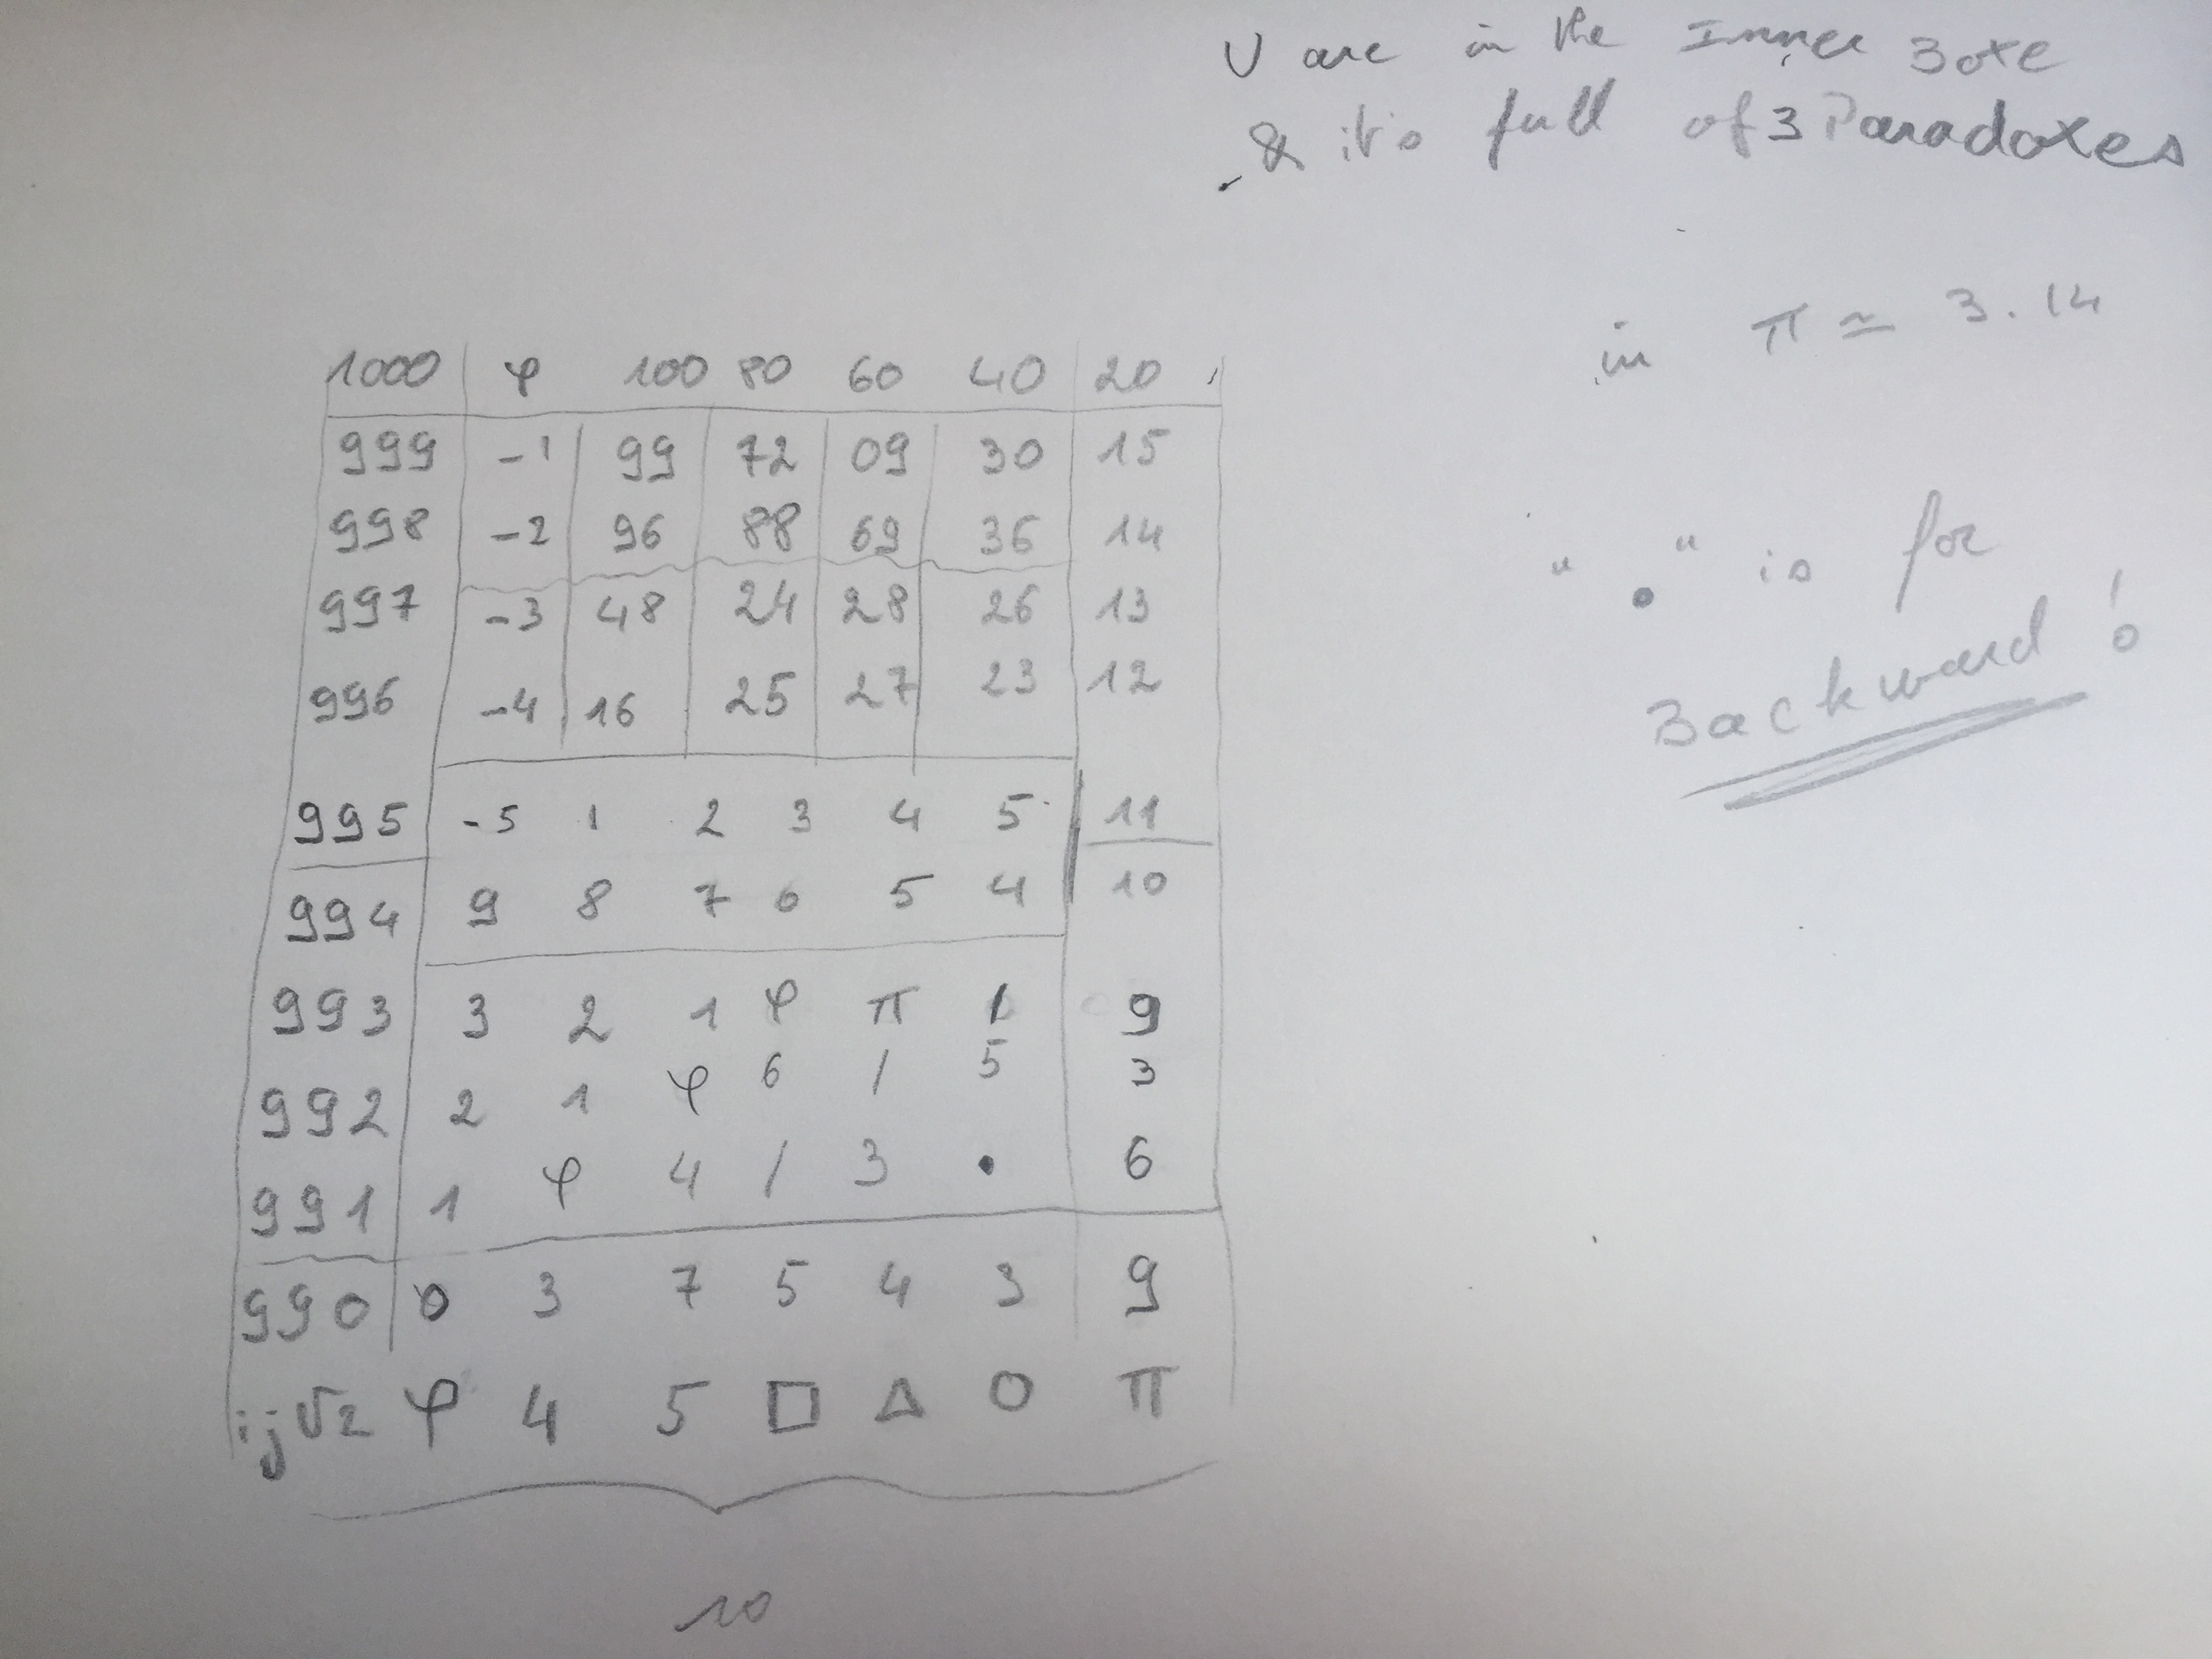 U are in the Inner 3oxe
& it's full of 3 Paradoxes
in π ≃ 3.14
" . " is for
3ackward !
1000 φ 100 80 60 40 20
999 -1 99 72 09 30 15
998 -2 96 88 69 36 14
997 -3 48 24 28 26 13
996 -4 16 25 27 23 12
995 -5 1 2 3 4 5 11
994 9 8 7 6 5 4 10
993 3 2 1 φ π / 9
992 2 1 φ 6 / 5 3
991 1 φ 4 / 3 • 6
990 0 3 7 5 4 3 9
ij√2 φ 4 5 □ Δ O π
10